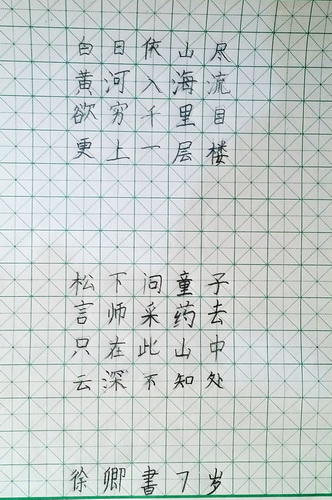 白日依山尽
黄河入海流
欲穷千里目
更上一层楼
松下问童子
言师采药去
只在此山中
云深不知处
徐卿書7岁